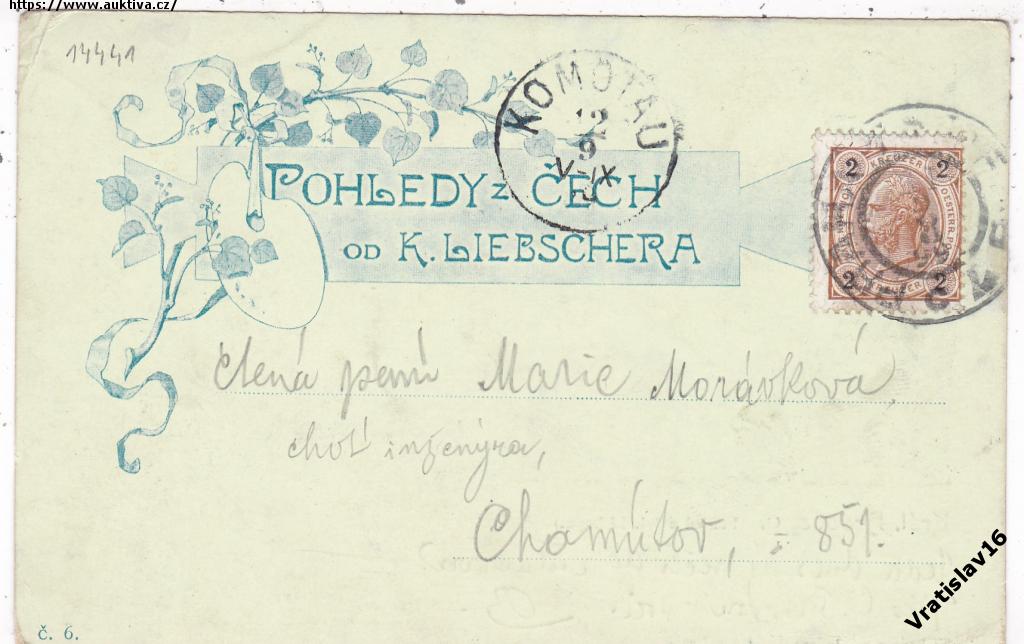 https://www.auktiva.cz/
14441
KOMOTAU
12
9
V-IX
POHLEDY z ČECH
OD K. LIEBSCHERA
2 KREUZER 2
OESTERR. POST
2 KREUZER 2
Ctená paní Marie Morávková,
choť inženýra,
Chomútov, 851.
č. 6.
Vratislav16